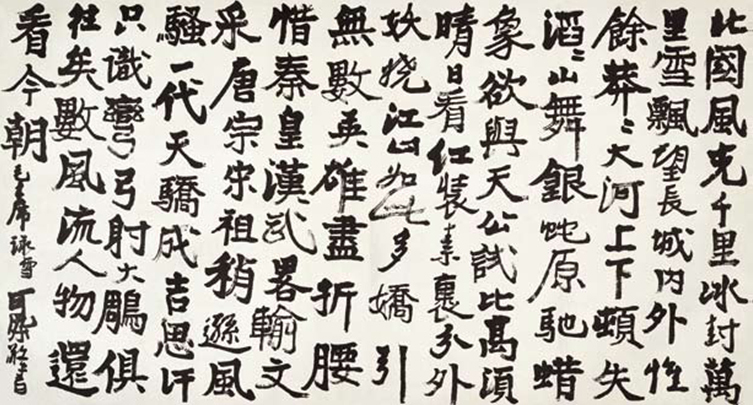 北國風光千里冰封萬
里雪飄望長城内外惟
餘莽〻大河上下頓失
滔〻山舞銀蛇原馳蜡
象欲與天公試比高須
晴日看红裝素裹分外
妖娆江山如此多嬌引
無數英雄盡折腰
惜秦皇漢武畧輸文
采唐宗宋祖稍遜風
騷一代天驕成吉思汗
只識彎弓射大鵰俱
往矣數風流人物還
看今朝
毛主席詠雪